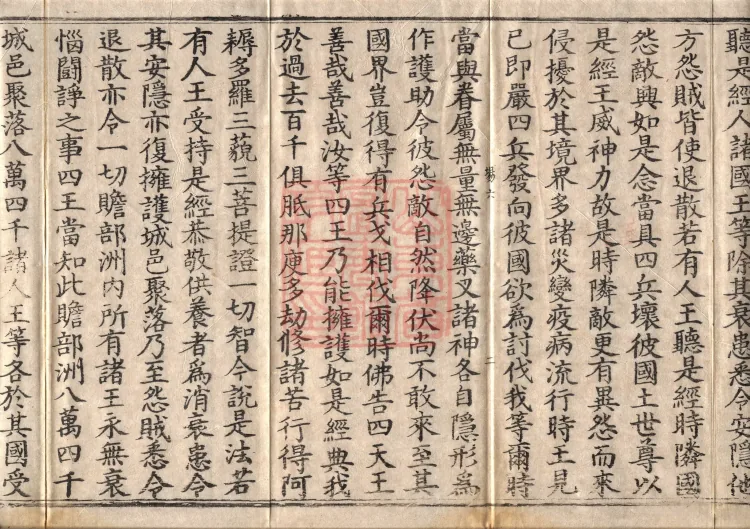 聽是經人諸國王等除其衰患悉令安隱他
方怨賊皆使退散若有人王聽是經時隣國
怨敵興如是念當具四兵壞彼國土世尊以
是經王威神力故是時隣敵更有異怨而來
侵擾於其境界多諸災變疫病流行時王見
已即嚴四兵發向彼國欲爲討伐我等爾時
場六 二
當與眷屬無量無邊藥叉諸神各自隱形爲
作護助令彼怨敵自然降伏尚不敢來至其
國界豈復得有兵戈相伐爾時佛告四天王
善哉善哉汝等四王乃能擁護如是經典我
於過去百千俱胝那庾多劫修諸苦行得阿
耨多羅三藐三菩提證一切智今說是法若
有人王受持是經恭敬供養者爲消衰患令
其安隱亦復擁護城邑聚落乃至怨賊悉令
退散亦令一切贍部洲內所有諸王永無衰
惱鬪諍之事四王當知此贍部洲八萬四千
城邑聚落八萬四千諸人王等各於其國受